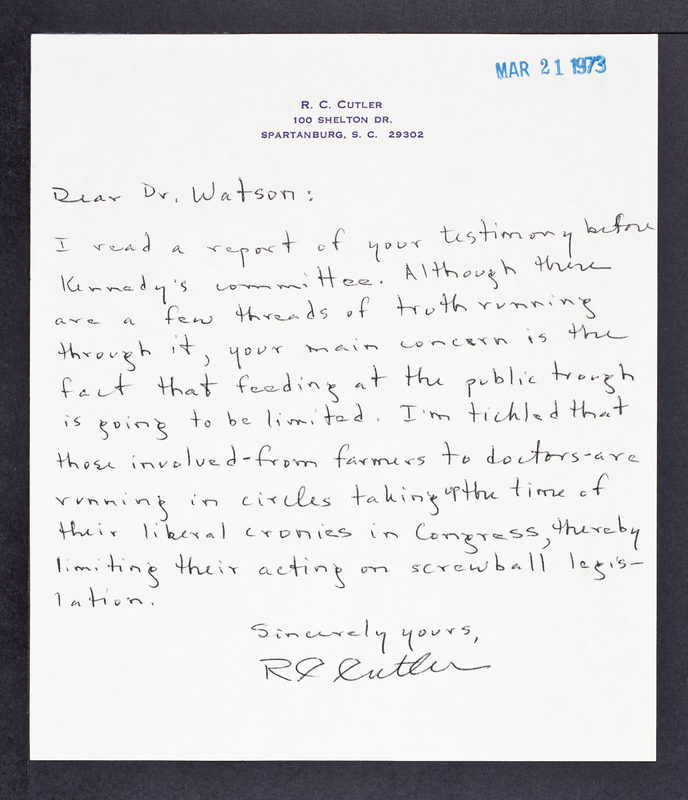 MAR 21 1973
R. C. CUTLER
100 SHELTON DR.
SPARTANBURG, S. C. 29302
Dear Dr. Watson:
I read a report of your testimony before
Kennedy's committee. Although there
are a few threads of truth running
through it, your main concern is the
fact that feeding at the public trough
is going to be limited. I'm tickled that
those involved-from farmers to doctors-are
running in circles taking up the time of
their liberal cronies in Congress, thereby
limiting their acting on screwball legis-
lation.
Sincerely yours,
R C Cutler